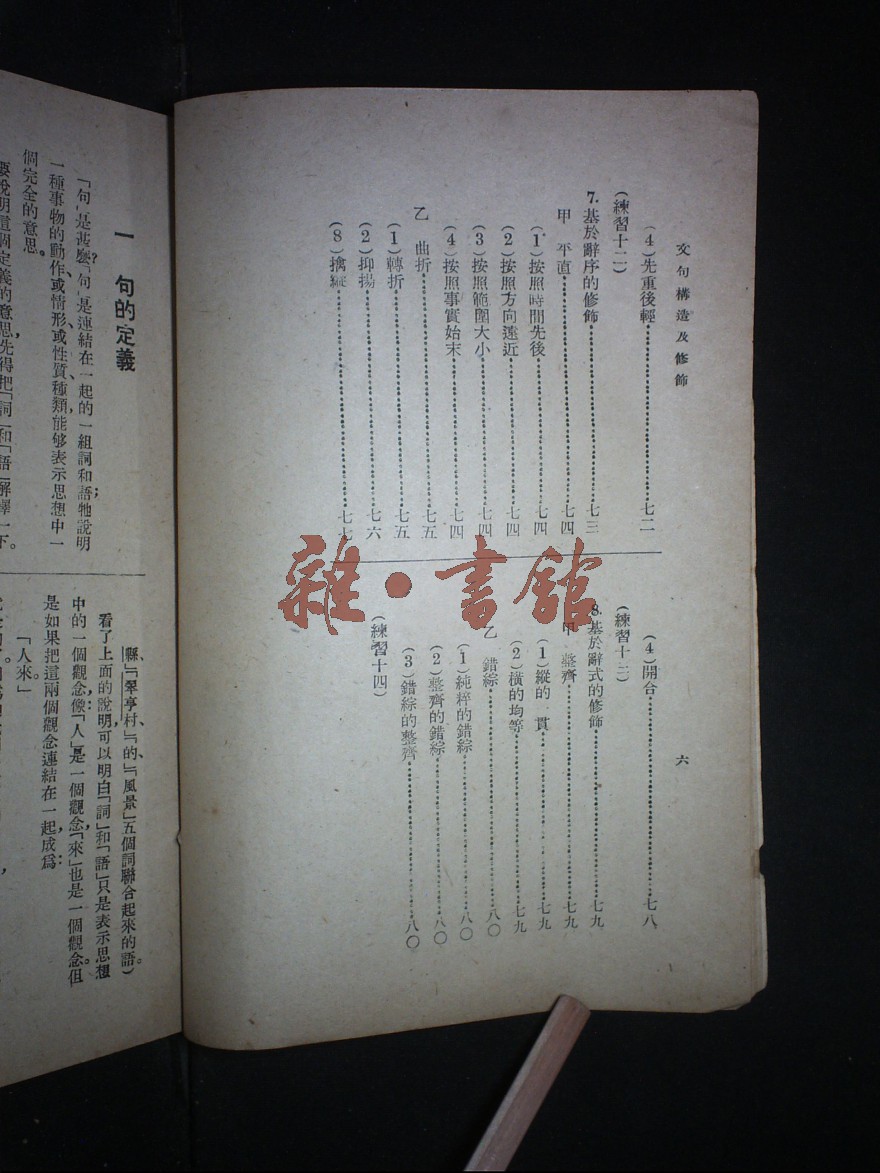 文句構造及修飾
六
(4)先重後輕……七二
(練習十二)
7.基於辭序的修飾……七三
甲 平直……七四
(1)按照時間先後……七四
(2)按照方向遠近……七四
(3)按照範圍大小……七四
(4)按照事實始末……七四
乙 曲折……七五
(1)轉折……七五
(2)抑揚……七六
(8)擒縱……七七
(4)開合……七八
(練習十三)
8.基於辭式的修飾……七九
甲 整齊……七九
(1)縱的一貫……七九
(2)橫的均等……七九
乙 錯綜……八〇
(1)純粹的錯綜……八〇
(2)整齊的錯綜……八〇
(3)錯綜的整齊……八〇
(練習十四)
雜·書館
一 句的定義
「句」是甚麼?「句」是連結在一起的一組詞和語;牠說明
一種事物的動作、或情形、或性質、種類,能够表示思想中一
個完全的意思。
要說明這個定義的意思,先得把「詞」和「語」解釋一下。
縣」、「翠亨村」、「的」、「風景」五個詞聯合起來的語。)
看了上面的說明,可以明白「詞」和「語」只是表示思想
中的一個觀念:像「人」是一個觀念,「來」也是一個觀念。但
是如果把這兩個觀念連結在一起,成爲:
「人來。」